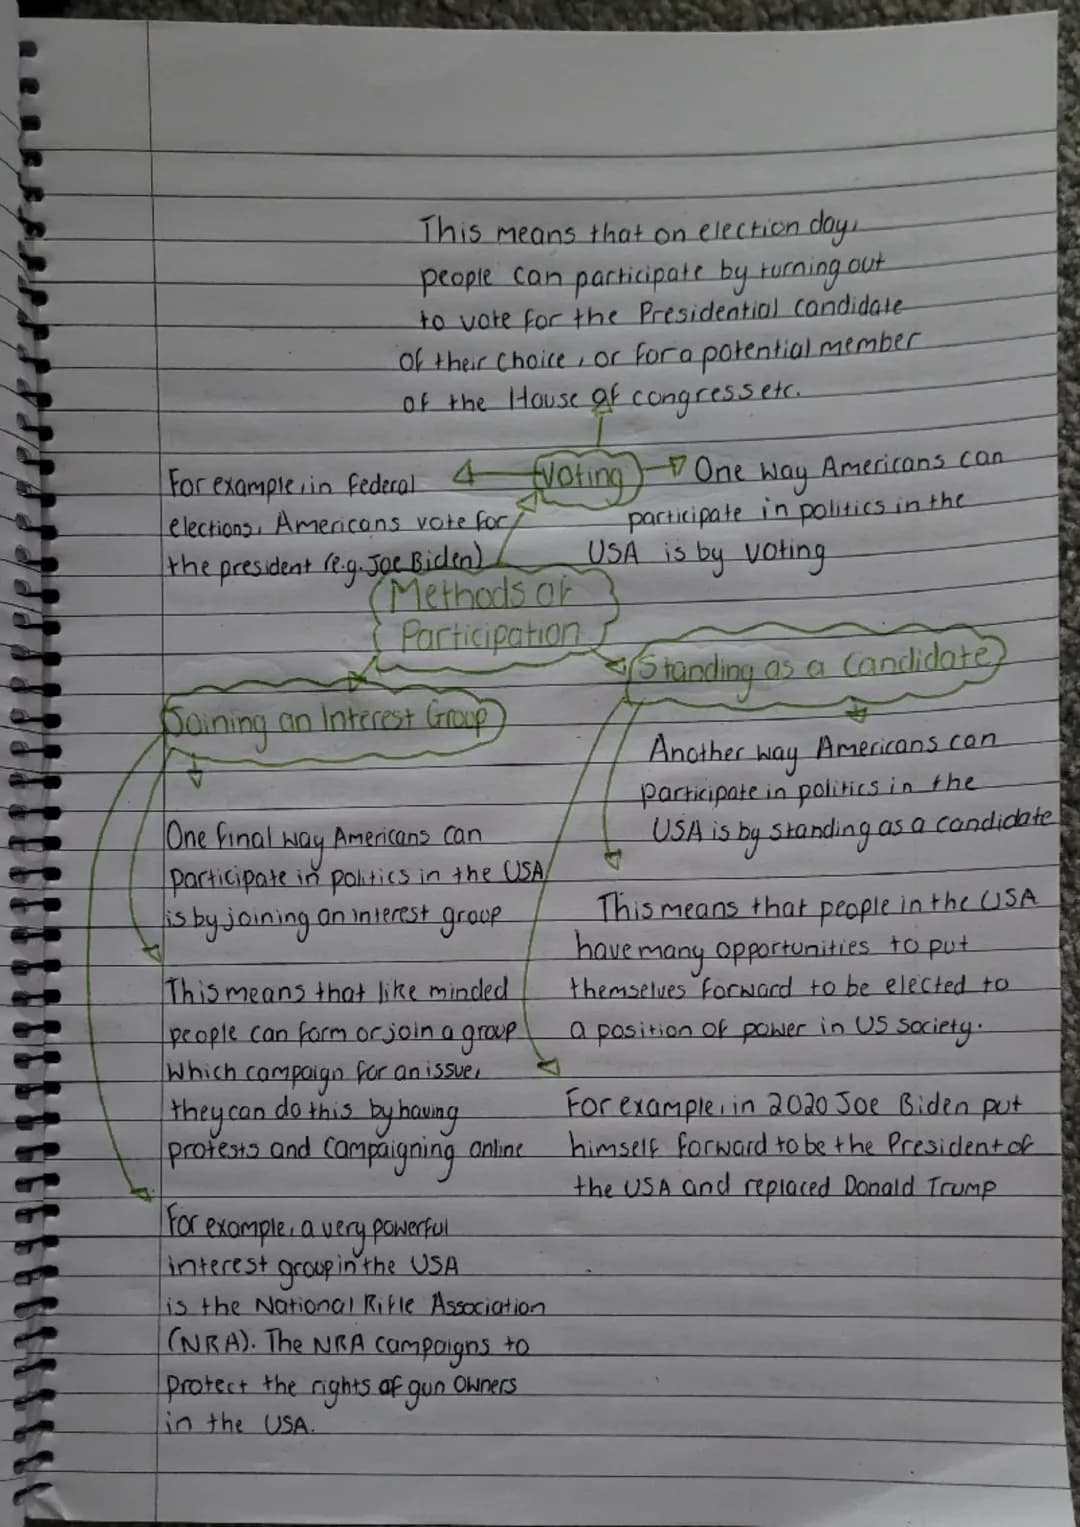 This means that on election day,
people can participate by turning out
to vote for the Presidential candidate
of their choice, or for a potential member
of the House of congress etc.
Voting
For example, in federal
elections, Americans vote for
the president (e.g. Joe Biden)
One way Americans can
participate in politics in the
USA is by voting
Methods of
Participation
Standing as a Candidate
Another way Americans can
participate in politics in the
USA is by standing as a candidate
This means that people in the USA
have many opportunities to put
themselves forward to be elected to
a position of power in US society.
For example, in 2020 Joe Biden put
himself forward to be the President of
the USA and replaced Donald Trump
Joining an Interest Group
One final way Americans can
participate in politics in the USA
is by joining an interest group
This means that like minded
people can form or join a group
which campaign for an issue,
they can do this by having
protests and campaigning online
For example, a very powerful
interest group in the USA
is the National Rifle Association
(NRA). The NRA campaigns to
protect the rights of gun owners
in the USA.